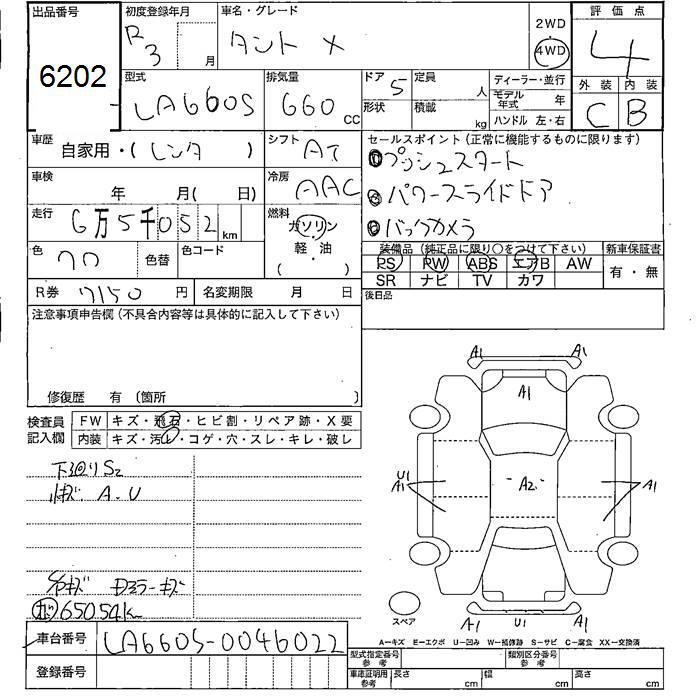 出品番号
6202
初度登録年月
R3 月
車名・グレード
タント X
2WD
4WD
評価点
4
外装 内装
C B
型式
LA660S
排気量
660 CC
ドア 5
形状
定員 人
積載 kg
ディーラー・並行
モデル年式 年
ハンドル 左・右
車歴
自家用・(レンタ )
シフト AT
車検
年 月( 日)
冷房 AAC
走行
6万5千052km
燃料
ガソリン
軽・油
( )
色 クロ
色替
色コード
R券 7150 円
名変期限 月 日
セールスポイント(正常に機能するものに限ります)
①プッシュスタート
②パワースライドドア
③バックカメラ
装備品(純正品に限り○をつけて下さい)
新車保証書
PS PW ABS エアB AW
SR ナビ TV カワ
有・無
後日品
注意事項申告欄(不具合内容等は具体的に記入して下さい)
修復歴 有 〔箇所 〕
検査員
記入欄
FW キズ・飛石・ヒビ割・リペア跡・X要
内装 キズ・汚れ・コゲ・穴・スレ・キレ・破レ
下廻りS2
小キズ A.U
外キズ ドアミラーキズ
65054km
A1 A1
A1
U1
A1
A2
A1
A1 U1 A1
スペア
A-キズ E-エクボ U-凹み W-補修跡 S-サビ C-腐食 XX-交換済
車台番号 LA660S-0046022
登録番号
型式指定番号
参考
類別区分番号
参考
車庫証明用
参考
長さ cm
幅 cm
高さ cm